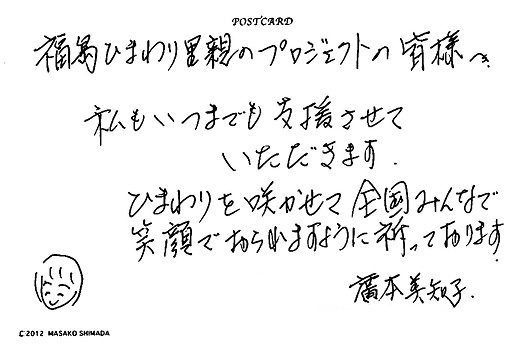 POSTCARD
福島ひまわり里親のプロジェクトの皆様へ
私もいつまでも支援させて
いただきます.
ひまわりを咲かせて全国みんなで
笑顔でおられますように祈っております.
本美知子.
©2012 MASAKO SHIMADA